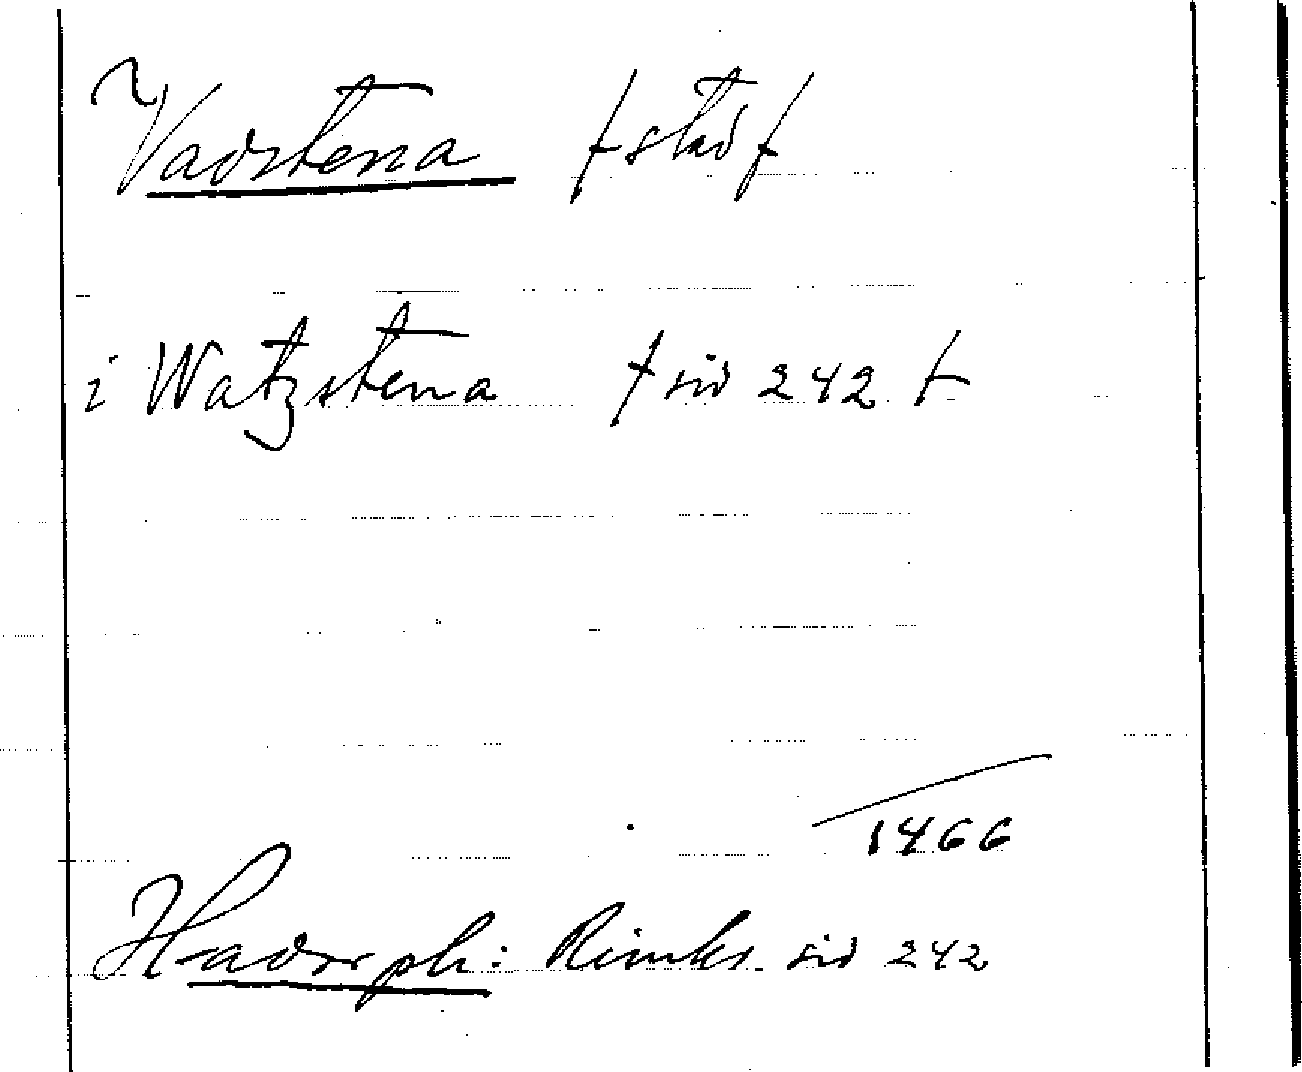 Vadstena /stad/
i Watzstena /sid 242/
1466
Hadorph: Rimkr. sid 242